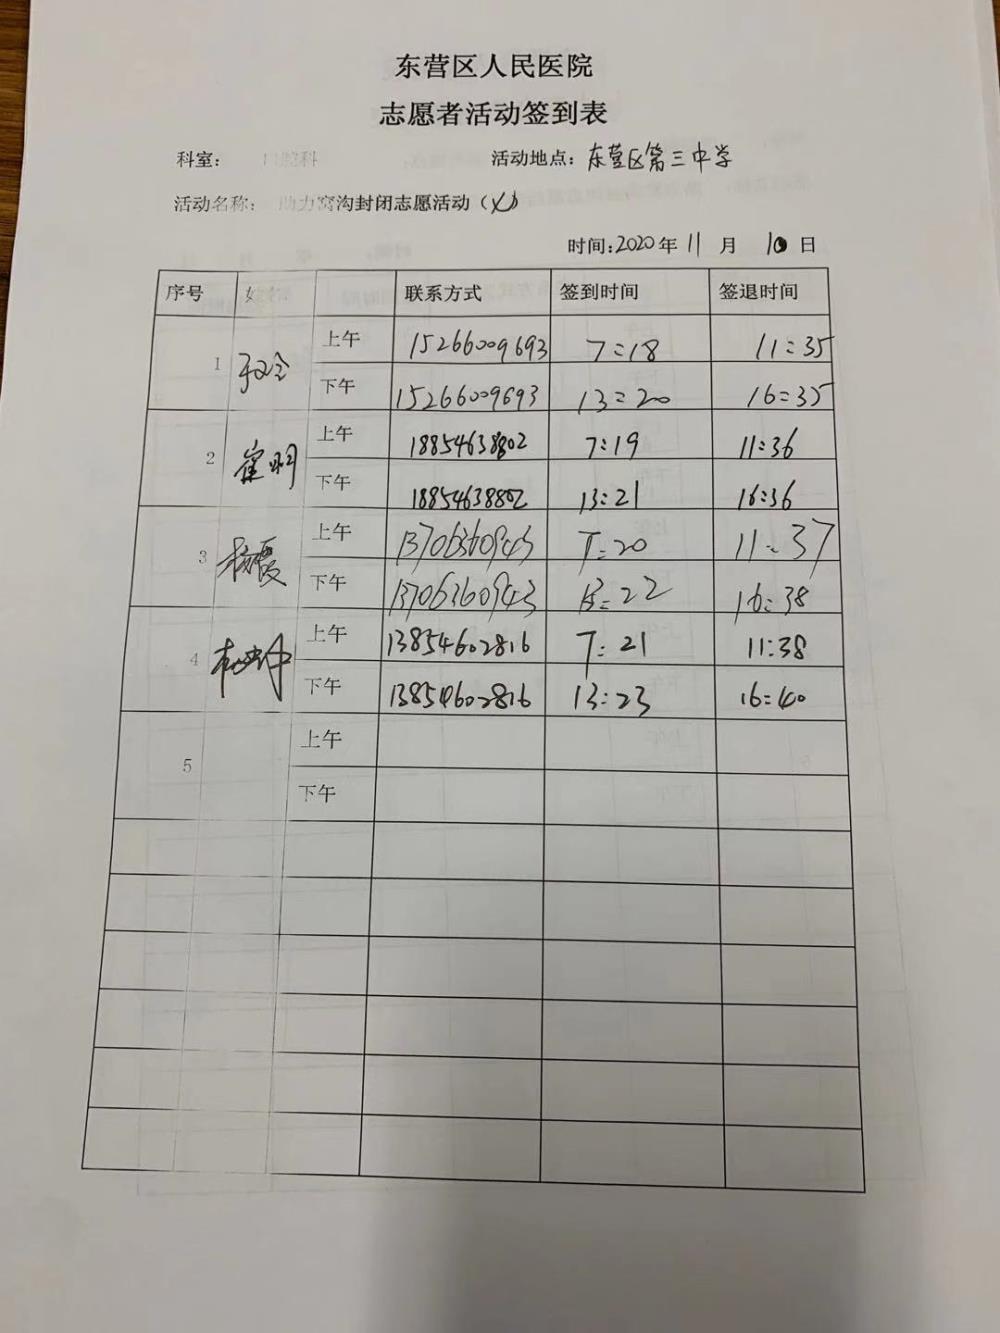 东营区人民医院
志愿者活动签到表
科室： 口腔科 活动地点：东营区第三中学
活动名称： 助力窝沟封闭志愿活动（ ）
时间:2020年 11 月 10 日
序号 姓名 联系方式 签到时间 签退时间
1 上午 15266009693 7:18 11:35
下午 15266009693 13:20 16:35
2 崔明 上午 18854638802 7:19 11:36
下午 18854638802 13:21 16:36
3 杨霞 上午 13706360943 7:20 11:37
下午 13706360943 13:22 16:38
4 上午 13854602816 7:21 11:38
下午 13854602816 13:23 16:40
5 上午
下午